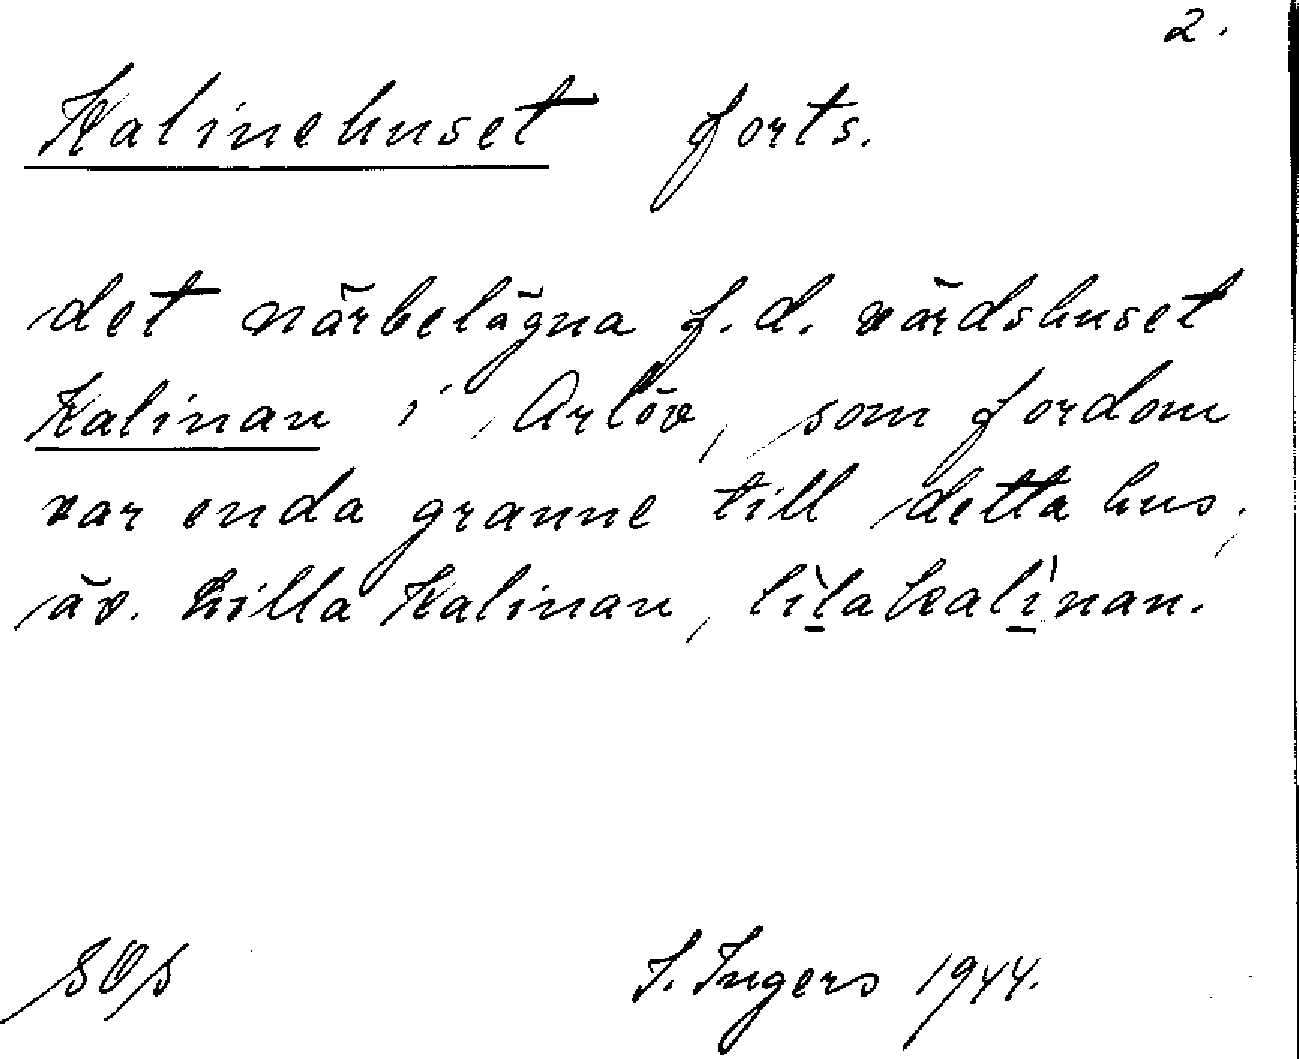 2.
Kalinehuset forts.
det närbelägna f.d. värdshuset
Kalinan i Arlöv, som fordom
var enda granne till detta hus;
äv. Lilla Kalinan, lìlakalìnan.
SOS
I. Ingers 1944.